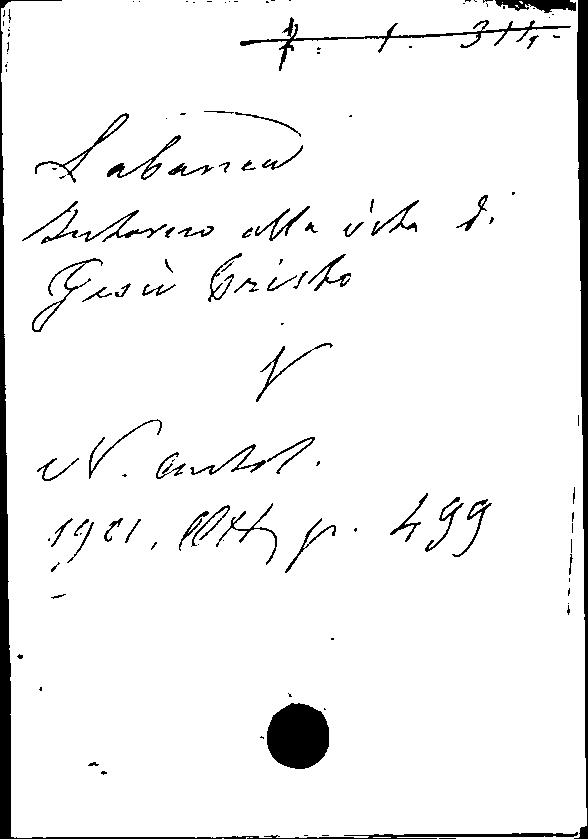 Labanca
Intorno alla vita di
Gesù Cristo
V
N. Antol.
1901, Ott, p. 499